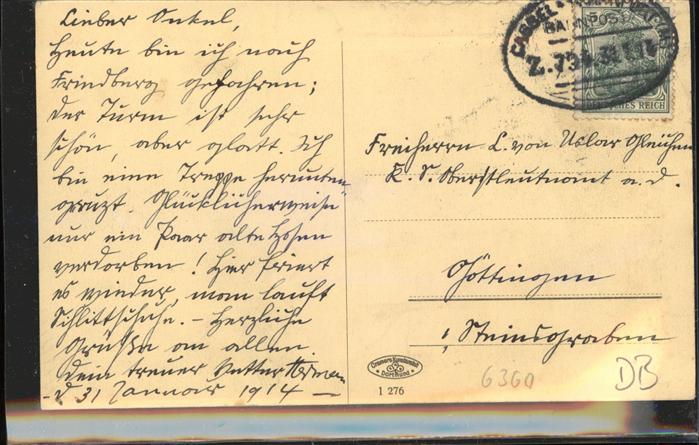 Lieber Onkel,
Heute bin ich nach
Friedberg gefahren;
der Turm ist sehr
schön, aber glatt. Ich
bin eine Treppe herunter
Glücklicherweise
nur ein Paar alte Hosen
verdorben! Hier friert
es wieder, man lauft
Schlittschuhe. – Herzliche
Grüße an allen.
Dein treuer Vetter
d 31 Januar 1914 –
CASSEL
BAHNPOST
Z.734 31 1 14
DEUTSCHES REICH
Freiherrn L. von Uslar Gleichen
K. S. Oberstleutnant a. d.
Göttingen
Steinsgraben
Dortmund
1 276
6360
DB